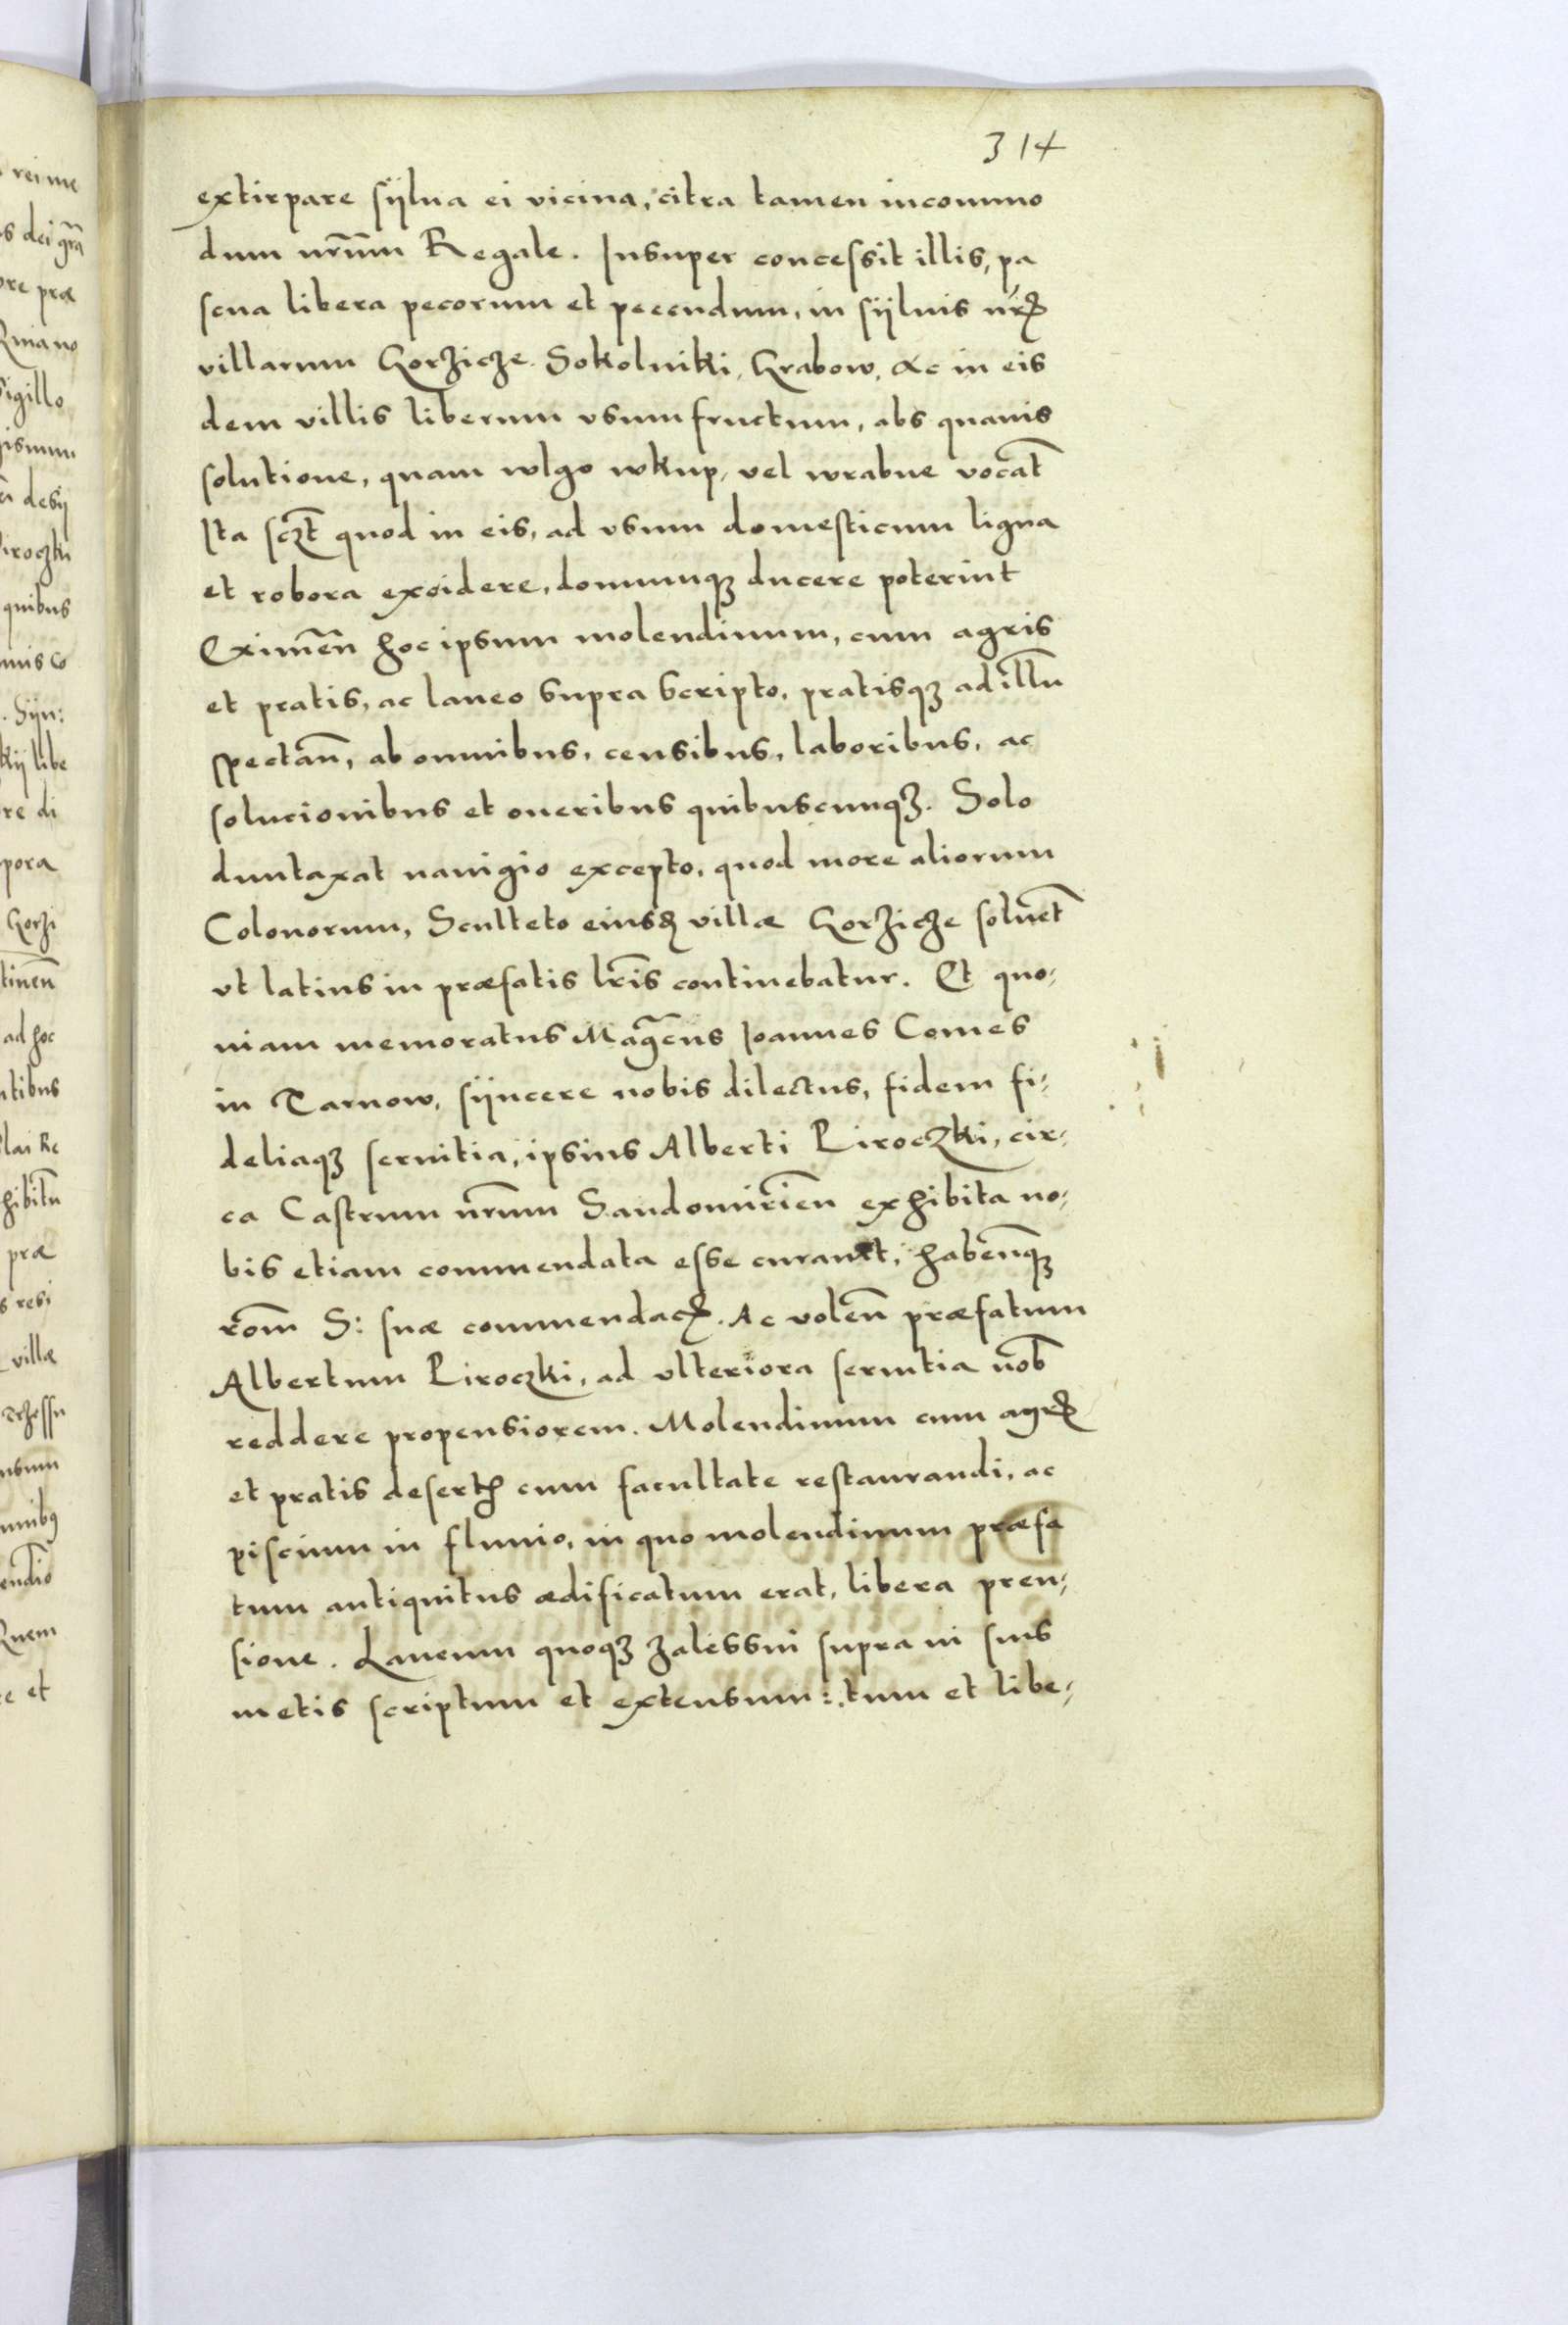 314
extirpare sÿlua ei vicina, citra tamen incommo
dum nr̄um Regale. Insuper concessit illis, pa
scua libera pecorum et pecudum, in sÿluis nr̄ꝭ
villarum Gorzicze. Sokolniki, Grabow, Ac in eis
dem villis liberum vsumfructum, abs quauis
solutione, quam wlgo wkup, vel wrabne vocāt
Ita scꝫt quod in eis, ad vsum domesticum ligna
et robora excidere, domumqꝫ ducere poterint
Eximeñ hoc ipsum molendinum, cum agris
et pratis, ac laneo supra scripto, pratisqꝫ ad illū
spectañ, ab omnibus, censibus, laboribus, ac
solucionibus et oneribus quibuscumqꝫ. Solo
duntaxat nauigio excepto, quod more aliorum
Colonorum, Sculteto eiusꝺ villæ Gorzicze soluet̄
vt latius in præfatis lr̄is continebatur. Et quo-
niam memoratus Mag̅cus Ioannes Comes
in Tarnow, sÿncere nobis dilectus, fidem fi-
deliaqꝫ seruitia, ipsius Alberti Piroczki, cir-
ca Castrum nr̄um Sandomirieñ exhibita no-
bis etiam commendata esse curauit, habeñqꝫ
rōm S: suæ commendacꝭ. Ac voleñ præfatum
Albertum Piroczki, ad vlteriora seruitia nob̄
reddere propensiorem. Molendinum cum agrꝭ
et pratis desertꝭ cum facultate restaurandi, ac
piscium in fluuio, in quo molendinum præfa
tum antiquitus ædificatum erat, libera pren-
sione. Laneum quoqꝫ Zalessni supra in suis
metis scriptum et extensum: tum et libe-